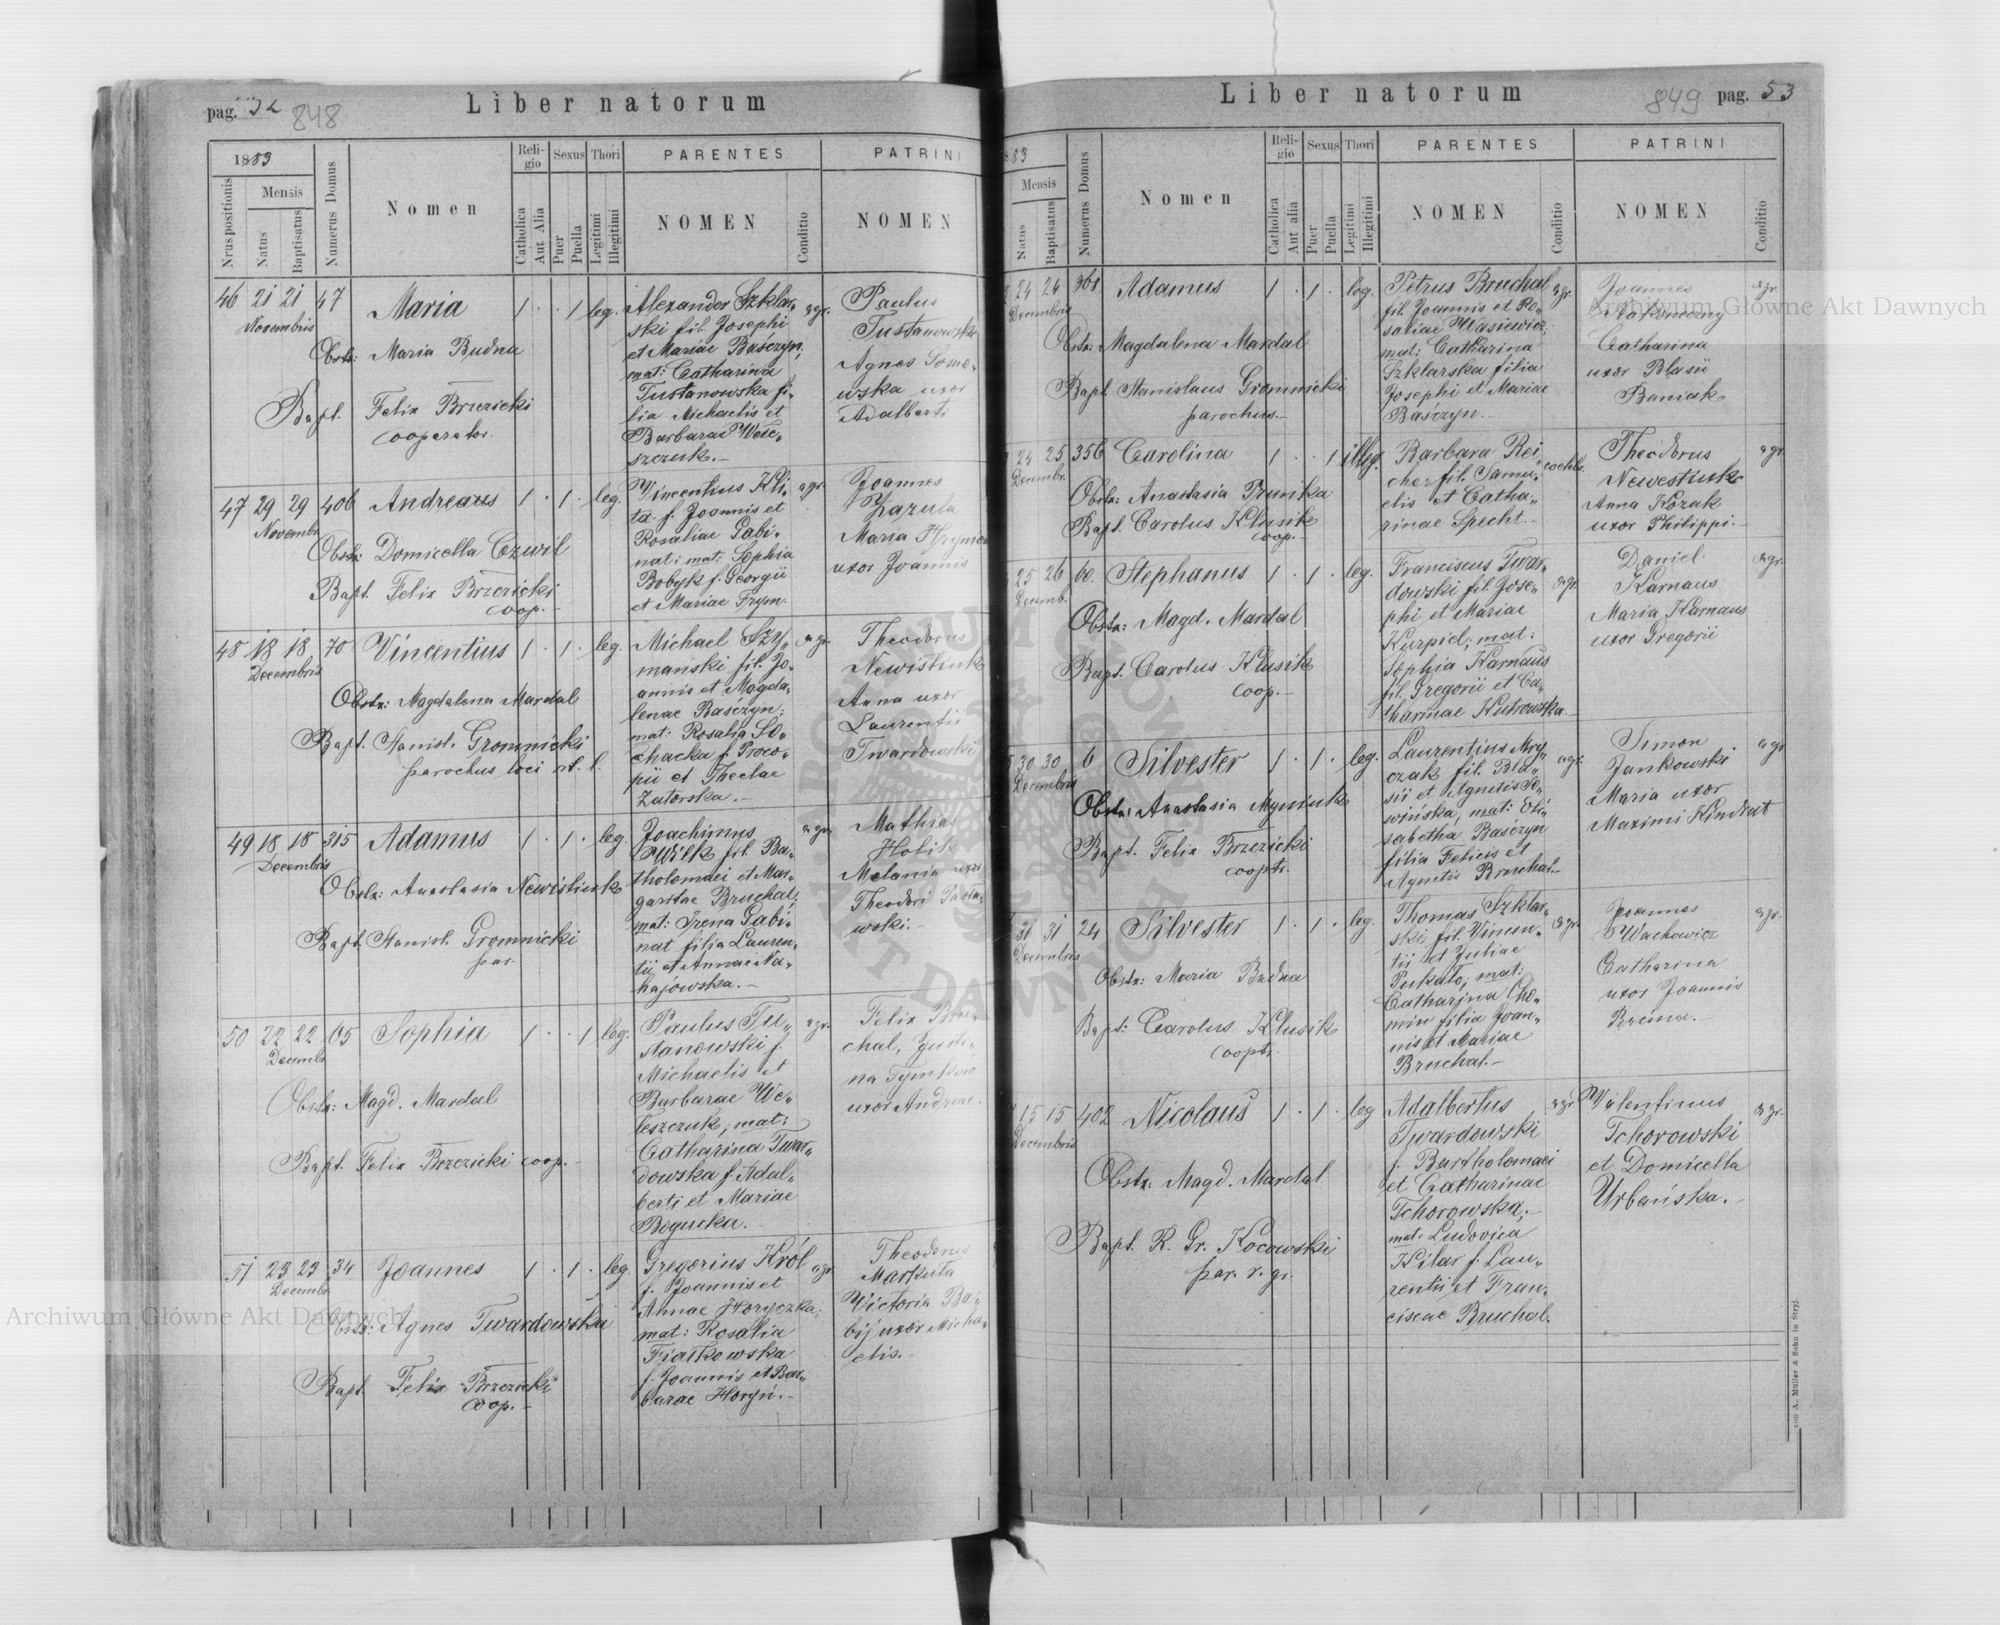 pag. 52 848
Liber natorum
1883
Nrus positionis
Mensis
Natus
Baptisatus
Numerus Domus
Nomen
Religio
Catholica
Aut Alia
Sexus
Puer
Puella
Thori
Legitimi
Illegitimi
PARENTES
NOMEN
Conditio
PATRINI
NOMEN
46 21 21 47 Maria 1 . . 1 leg.
Novembris
Obstr: Maria Budna
Bapt. Felix Brzezicki
cooperator.
Alexander Szklar„
ski fil. Josephi
et Mariae Baśczyn;
mat: Catharina
Tustanowska fi„
lia Michaelis et
Barbarae Wele„
szczuk.—
agr.
Paulus
Tustanowski
Agnes Somo„
wska uxor
Adalberti
47 29 29 406 Andreas 1 . 1 . leg.
Novembr.
Obstr: Domicella Czwil
Bapt. Felix Brzezicki
coop.—
Vincentius Kli„
ta f. Joannis et
Rosaliae Gabi„
nat; mat: Sophia
Bobyk f. Georgii
et Mariae Frym.
agr.
Joannes
Zazula
Maria
uxor Joannis
48 18 18 70 Vincentius 1 . 1 . leg.
Decembris
Obstr: Magdalena Mardal
Bapt. Stanisl. Gromnicki
parochus loci rt. l.
Michael Szy„
manski fil. Jo„
annis et Magda„
lenae Basczyn;
mat: Rosalia So„
chacka f. Proco„
pii et Theclae
Zatorska.—
agr.
Theodorus
Newistiuk
Anna uxor
Laurentii
Twardowski
49 18 18 315 Adamus 1 . 1 . leg.
Decembris
Obstr: Anastasia Newistiuk
Bapt. Stanisl. Gromnicki
par.
Joachimus
Wilk fil. Ba„
tholomaei et Mar„
garitae Bruchal;
mat: Irena Gabi„
nat filia Lauren„
tii et Annae Na„
hajowska.—
agr.
Mathias
Holik
Melania uxor
Theodori
wski.—
50 22 22 65 Sophia 1 . . 1 leg.
Decembr.
Obstr: Magd. Mardal
Bapt. Felix Brzezicki coop.—
Paulus Tu„
stanowski f.
Michaelis et
Barbarae We„
leszczuk, mat:
Catharina Twar„
dowska f. Adal„
berti et Mariae
Bogucka.—
agr.
Felix Bru„
chal, Justi„
na Tymkow
uxor Andreae.
51 23 23 34 Joannes 1 . 1 . leg.
Decembr.
Obstr: Agnes Twardowska
Bapt. Felix Brzezicki
coop.—
Gregorius Król
f. Joannis et
Annae Horyczka;
mat: Rosalia
Fiałkowska
f. Joannis et Bar„
barae Horyń.—
agr.
Theodorus
Markuta
Victoria Ba„
bij uxor Micha„
elis.—
Liber natorum
849 pag. 53
83
Mensis
Natus
Baptisatus
Numerus Domus
Nomen
Religio
Catholica
Aut alia
Sexus
Puer
Puella
Thori
Legitimi
Illegitimi
PARENTES
NOMEN
Conditio
PATRINI
NOMEN
Conditio
24 24 361 Adamus 1 . 1 . leg.
Decembris
Obstr: Magdalena Mardal
Bapt Stanislaus Gromnicki
parochus.—
Petrus Bruchal
fil. Joannis et Ro„
saliae Wasiewicz;
mat: Catharina
Szklarska filia
Josephi et Mariae
Baśczyn.—
agr.
Joannes
Catharina
uxor Blasii
Baniak
agr.
24 25 356 Carolina 1 . . 1 illeg.
Decembr.
Obstr: Anastasia Prunika
Bapt. Carolus Klusik
coop.—
Barbara Rei„
cher fil. Samu„
elis et Catha„
rinae Specht.—
Theodorus
Newestiuk
Anna Kozak
uxor Philippi.—
agr.
25 26 60. Stephanus 1 . 1 . leg.
Decemb.
Obstr: Magd. Mardal
Bapt. Carolus Klusik
coop.—
Franciscus Twar„
dowski fil. Jose„
phi et Mariae
Kurpiel; mat:
Sophia Karnaus
fil. Gregorii et Ca„
tharinae Kutrowska.
agr.
Daniel
Karnaus
Maria Karnaus
uxor Gregorii
agr.
30 30 6 Silvester 1 . 1 . leg.
Decembris
Obstr: Anastasia Myniuk
Bapt. Felix Brzezicki
cooptr.
Laurentius Mry„
czak fil. Bla„
sii et Agnetis So„
wińska, mat: Eli„
sabetha Baśczyn
filia Felicis et
Agnetis Bruchal.—
agr.
Simon
Jankowski
Maria uxor
Maximi Kindrat
agr
31 31 24 Silvester 1 . 1 . leg.
Decembris
Obstr: Maria Budna
Bapt: Carolus Klusik
cooptr.
Thomas Szklar„
ski fil. Vincen„
tii et Juliae
Pukało, mat:
Catharina Cho„
min filia Joan„
nis et Mariae
Bruchal.—
agr.
Joannes
Wachowicz
Catharina
uxor Joannis
Brcina.—
agr.
15 15 402 Nicolaus 1 . 1 . leg
Decembris
Obstr: Magd. Mardal
Bapt. R. Gr. Kocowski
par. r. gr.
Adalbertus
Twardowski
f. Bartholomaei
et Catharinae
Tchorowska;—
mat: Ludovica
Kilar f. Lau„
rentii et Fran„
ciscae Bruchal.
agr.
Valentinus
Tchorowski
et Domicella
Urbańska.—
agr.
von A. Müller & Sohn in Stryj.
Archiwum Główne Akt Dawnych
Archiwum Główne Akt Dawnych
ARCHIWUM GŁÓWNE AKT DAWNYCH